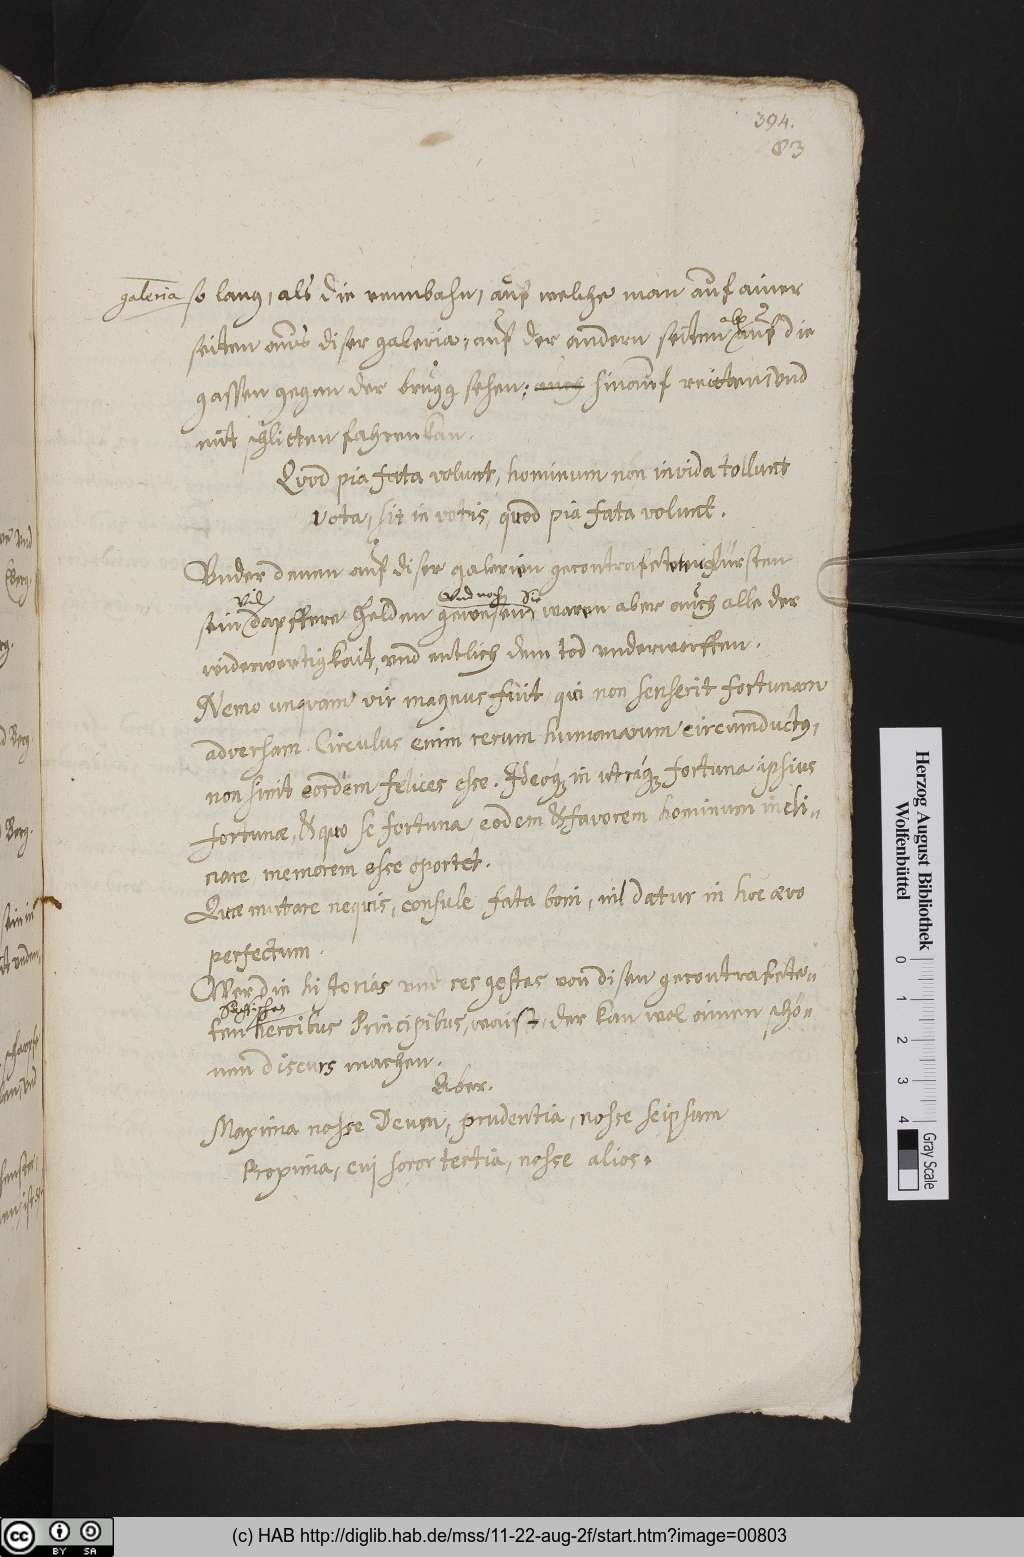 394.
83
galeria so lang, als die rennbahn, auf welche man auf ainer
seitten aus diser galeria, auf der andern seitten aber auf die
gassen gegen der brugg sehen; hinauf reitten, und
mit schlitten fahren kan.
Quod pia fata volunt, hominum non invida tollunt
Vota, sit in votis, quod pia fata volunt.
Under denen auf diser galerien gecontrafetten Fürsten
sein vil dapffere Helden gewesen, und noch, Sie waren aber auch alle der
widerwertigkait, und entlich dem tod underworffen.
Nemo unquam vir magnus fuit, qui non senserit fortunam
adversam. Circulus enim rerum humanarum circumductus,
non sinit eosdem felices esse. Ideoq; in utraq; fortuna ipsius
fortunæ, & quo se fortuna eodem & favorem hominum incli=
nare, memorem esse oportet.
Quæ mutare nequis, consule fata boni, nil datur in hoc ævo
perfectum.
Wer die historias und res gestas von disen gecontrafete=
ten heroibus Principibus, waist, der kan wol ainen schö=
nen discurs machen.
Aber.
Maxima nosse Deum, prudentia, nosse seipsum
Proxima, cui soror tertia, nosse alios.
Herzog August Bibliothek
Wolfenbüttel
0 1 2 3 4
Gray Scale
cc BY SA
(c) HAB http://diglib.hab.de/mss/11-22-aug-2f/start.htm?image=00803